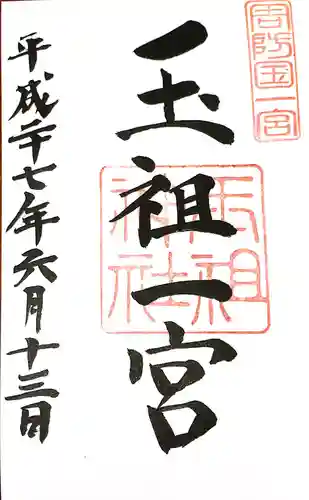 周防国一宮
玉祖一宮
玉祖神社
平成二十七年六月十三日